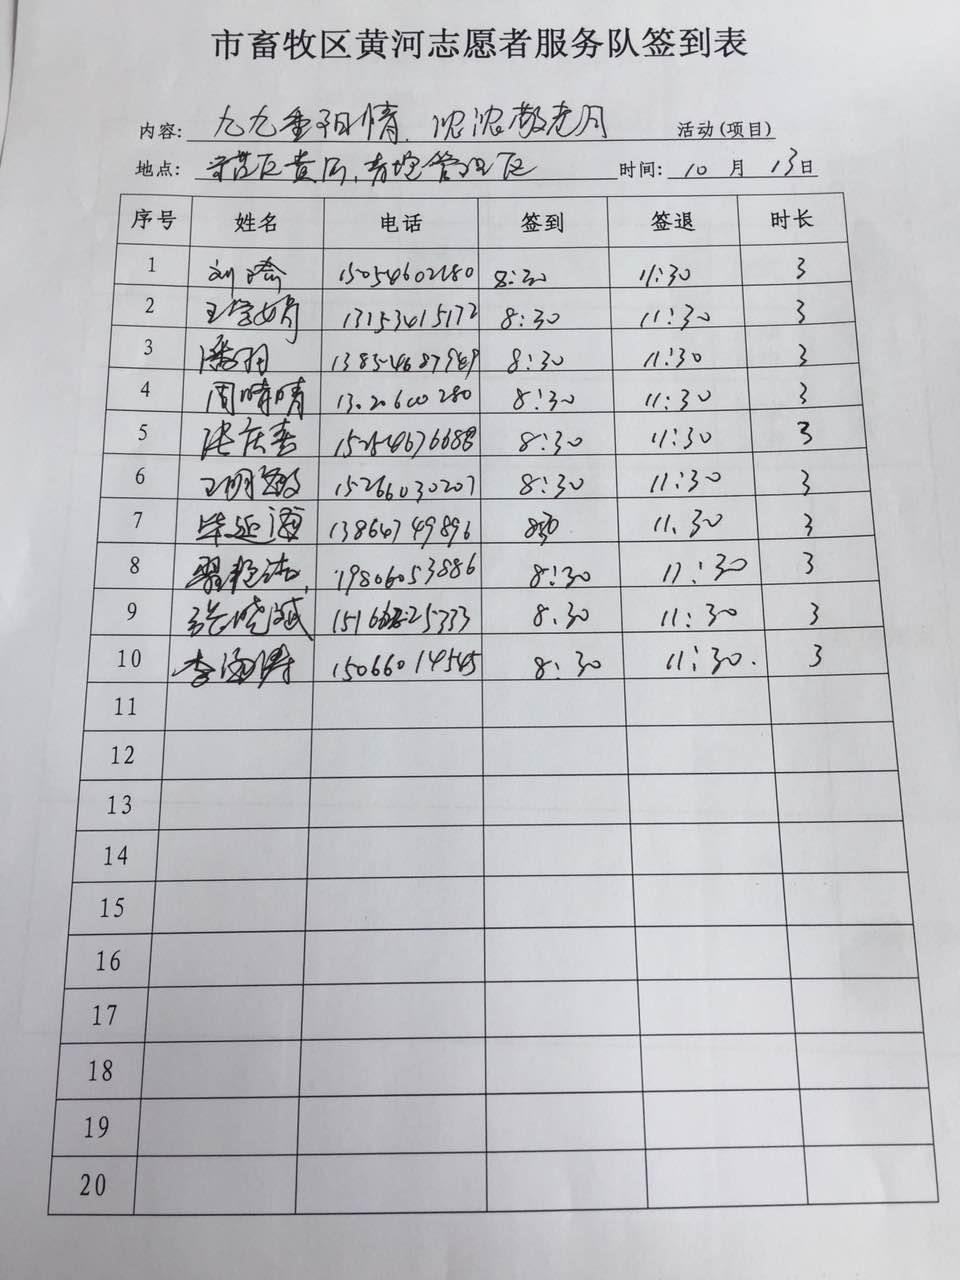 市畜牧区黄河志愿者服务队签到表
内容: 九九重阳情, 浓浓敬老月 活动(项目)
地点: 管理区 时间: 10 月 13日
序号 姓名 电话 签到 签退 时长
1 刘 15054602180 8:30 11:30 3
2 王学娟 13153415172 8:30 11:30 3
3 潘羽 8:30 11:30 3
4 周晴晴 8:30 11:30 3
5 张庆春 8:30 11:30 3
6 王明 15266030207 8:30 11:30 3
7 毕延 13864749896 830 11.30 3
8 19806053886 8:30 11:30 3
9 张晓斌 8.30 11:30 3
10 李海涛 15066014545 8:30 11:30. 3
11
12
13
14
15
16
17
18
19
20